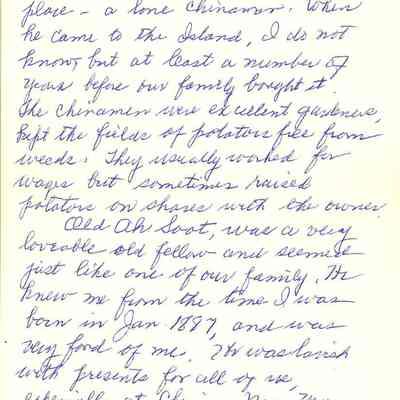 place - a lone Chinaman. When
he came to the Island, I do not
know, but at least a number of
years before our family bought it.
The Chinamen were excellent gardeners,
kept the fields of potatoes free from
weeds. They usually worked for
wages but sometimes raised
potatoes on shares with the owner.
Old Ah Soot, was a very
loveable old fellow and seemed
just like one of our family. He
knew me from the time I was
born in Jan 1897, and was
very fond of me. He was lavish
with presents for all of us,
especially at China New